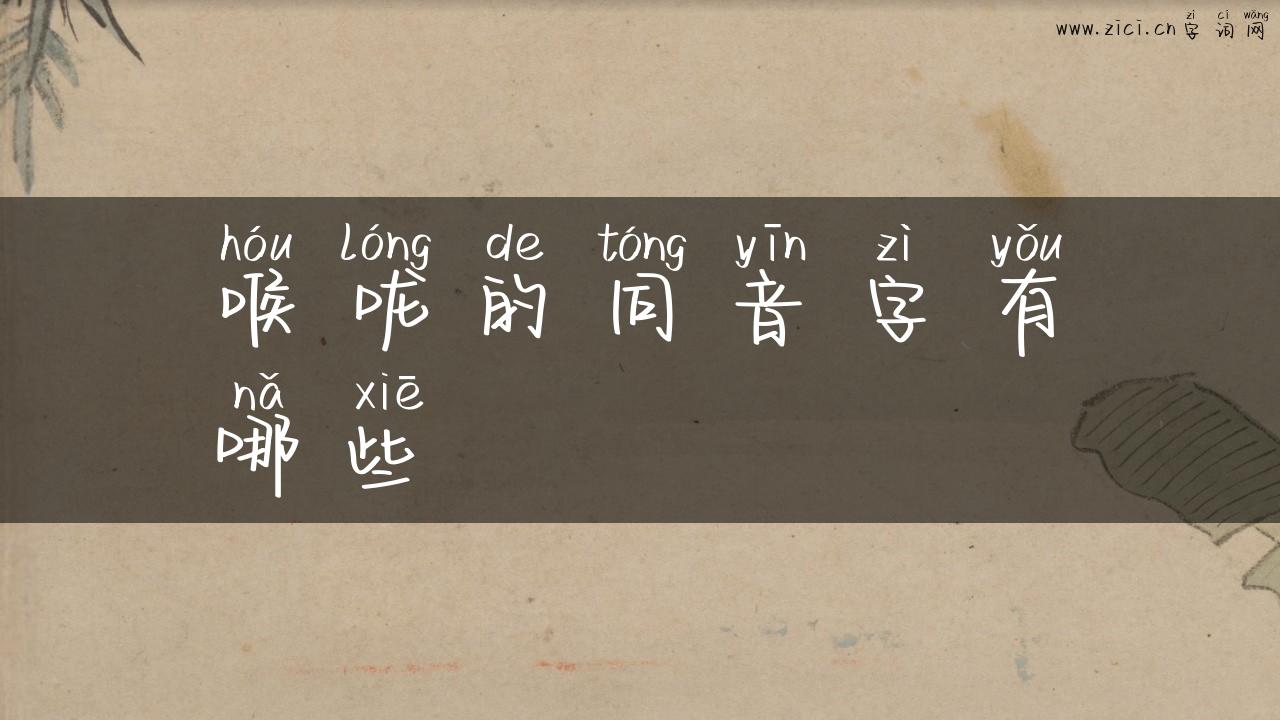 www.zici.cn 字词网
zì cí wǎng
hóu lóng de tóng yīn zì yǒu
喉咙的同音字有
nǎ xiē
哪些